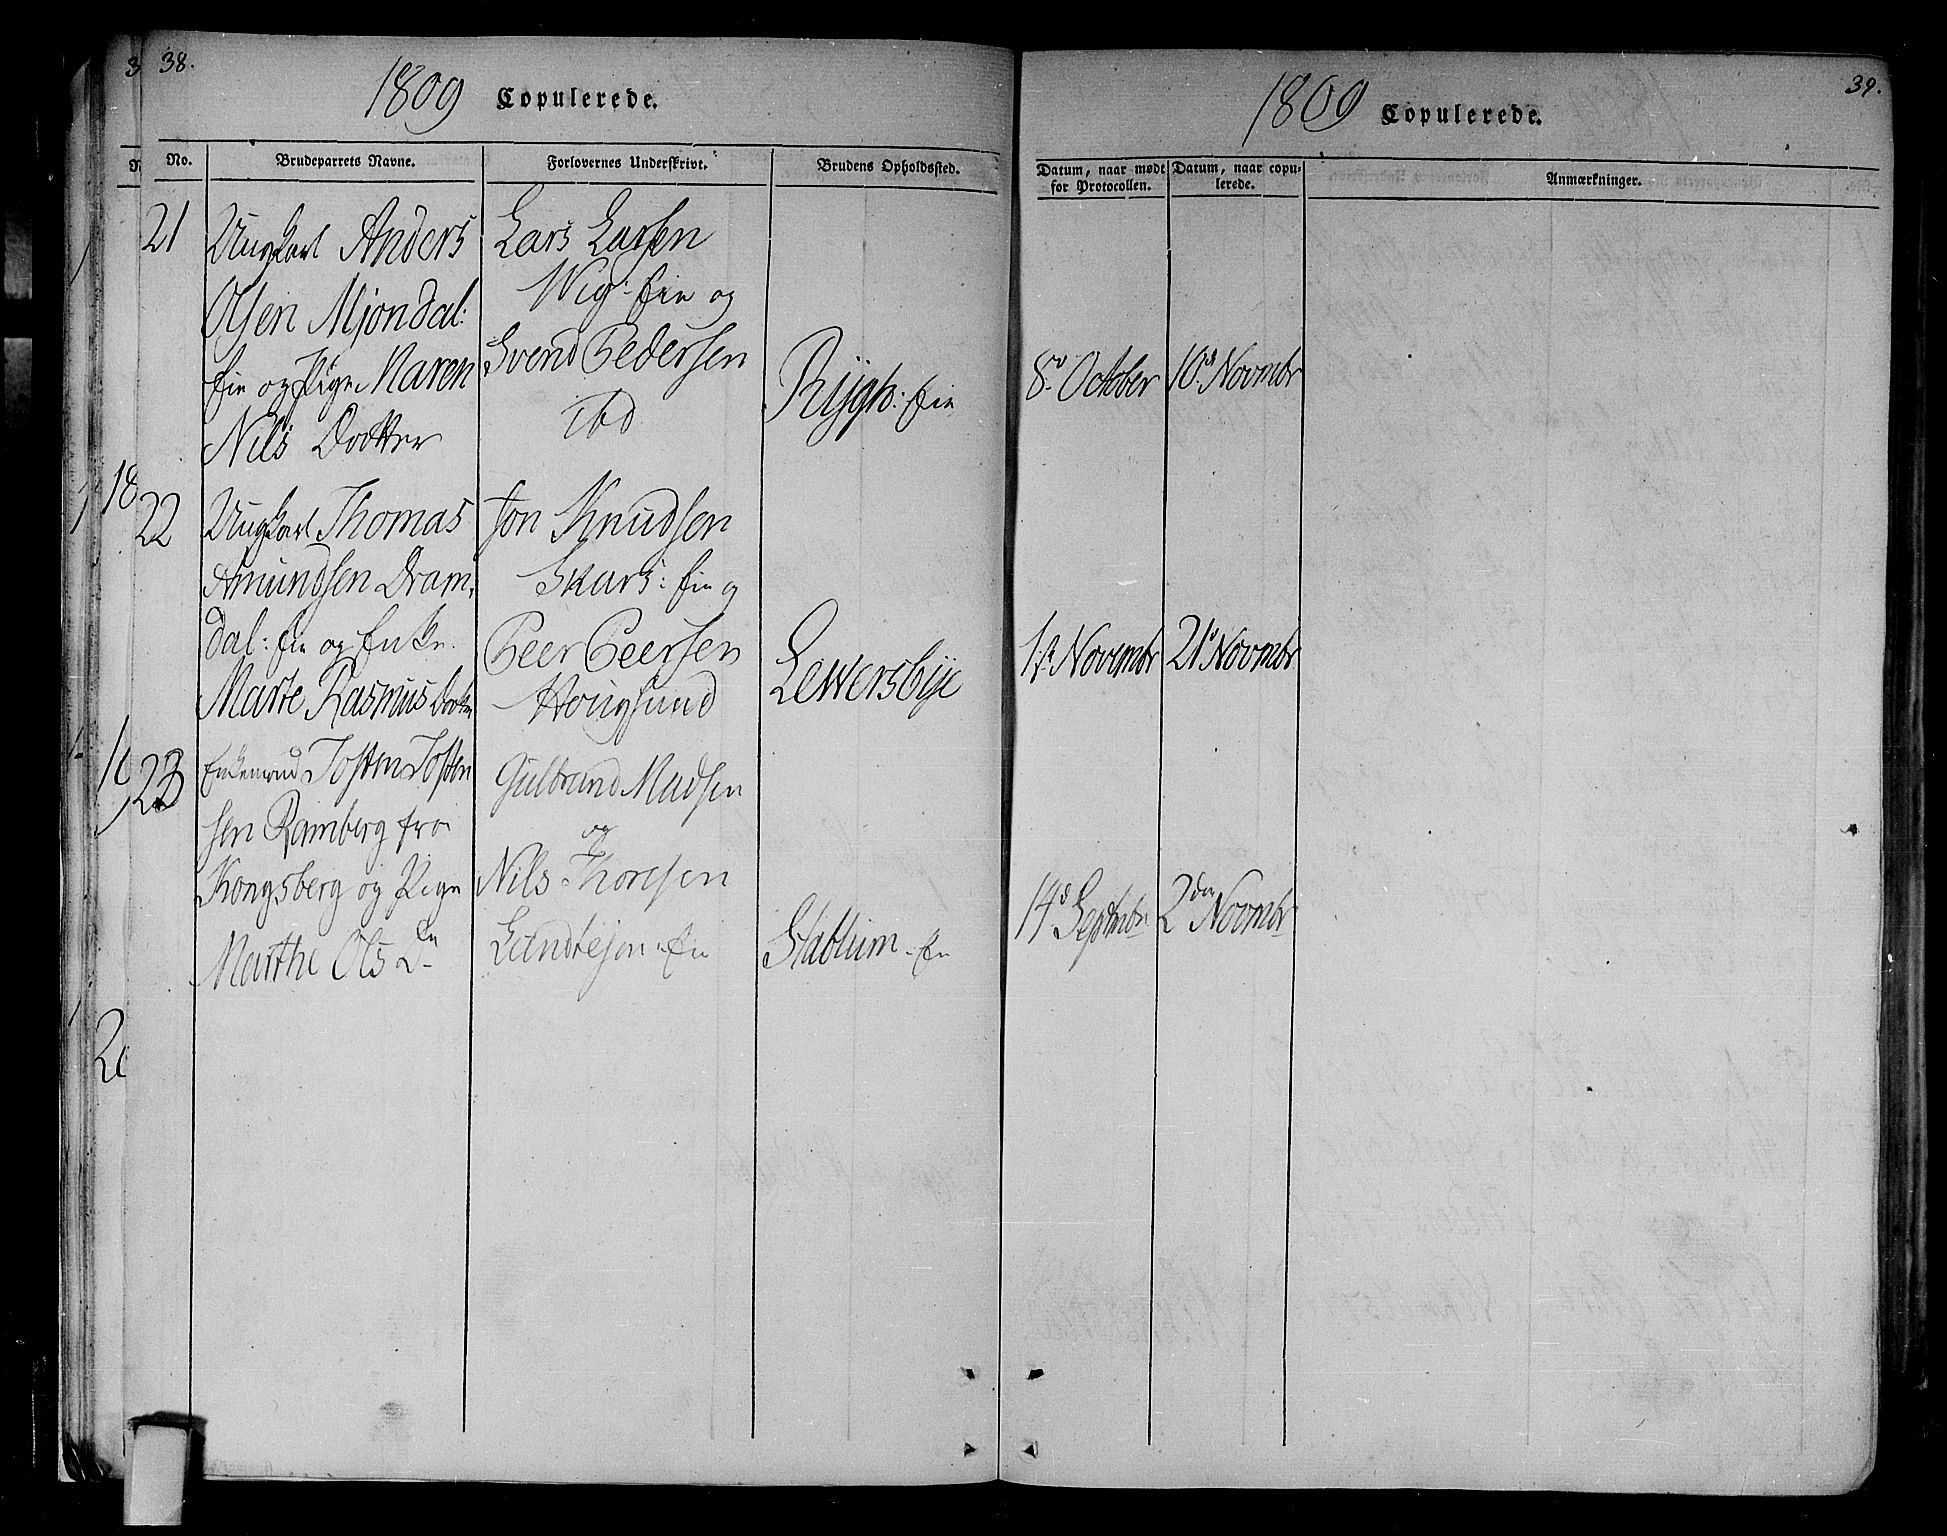 38.
1809 Copulerede.
No.
Brudeparrets Navne.
Forlovernes Underskrivt.
Brudens Opholdssted.
21
Ungkarl Anders
Olsen Mjondal:
Eie og Pige Maren
Nils Dotter
Lars Larsen
Wig: Eie og
Svend Pedersen
ibd
Rygh: Eie
22
Ungkarl Thomas
Amundsen Dram,
dal: Eie og Enke
Marte Rasmus Dotter
Jon Knudsen
Skars: Eie og
Peer Peersen
Hougsund
Lewersbye
23
Enkemand Josten Josten
sen Ramberg fra
Kongsberg og Pige
Marthe Ols D
Gulbrand Madsen
og
Nils Thoresen
Eie
Stablum: Eie
39.
1809 Copulerede.
Datum, naar mødt
for Protocollen.
Datum, naar copu-
lerede.
Anmærkninger.
8d October
10d Novmbr
1st Novembr
21d Novmbr
14d Septmbr
2den Novmbr
18
19